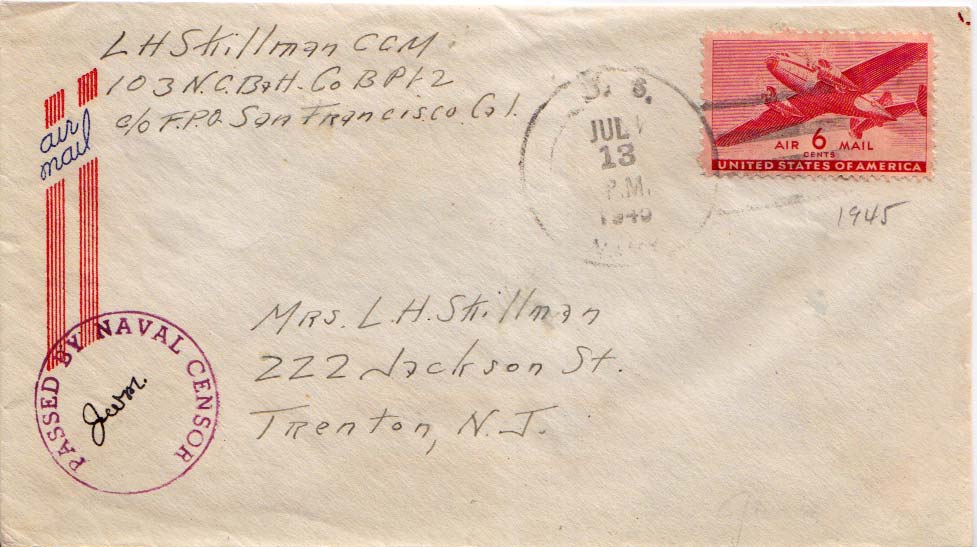 L H Skillman CCM
103 N.C. Batt. Co B Plt 2
c/o F.P.O. San Francisco Cal.
air
mail
U. S.
JUL
13
P.M.
AIR 6 MAIL
CENTS
UNITED STATES OF AMERICA
1945
Mrs. L.H. Skillman
222 Jackson St.
Trenton, N.J.
PASSED BY NAVAL CENSOR